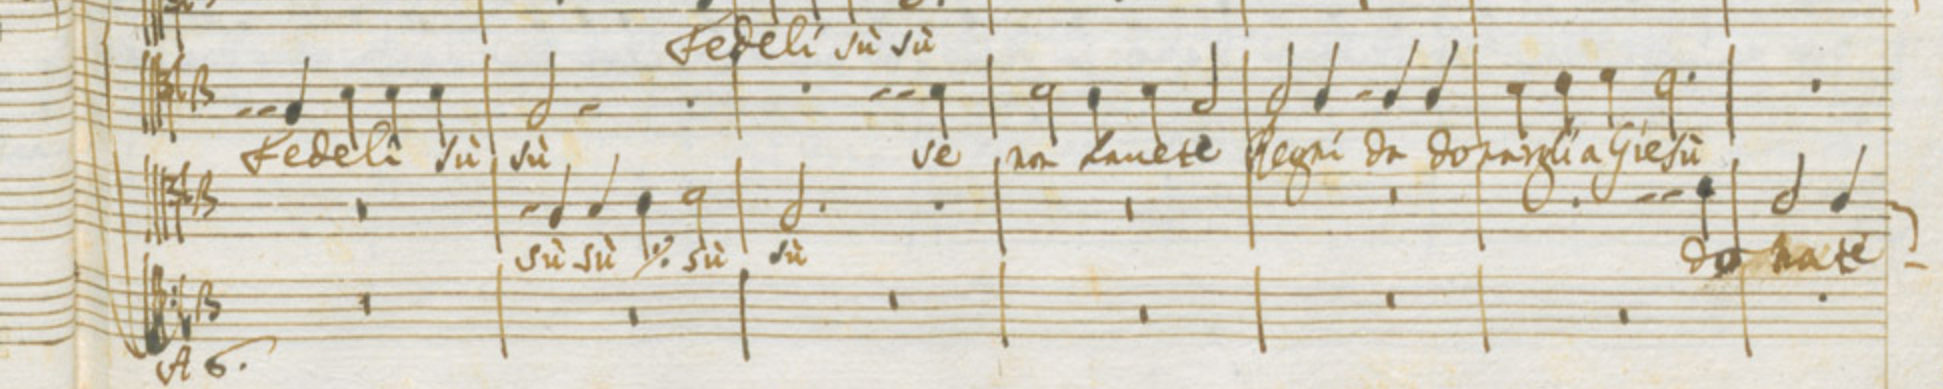 Fedeli sù sù
Fedeli sù sù se non hauete Regni da donargli a Giesù
sù sù sù sù donate
A 6.